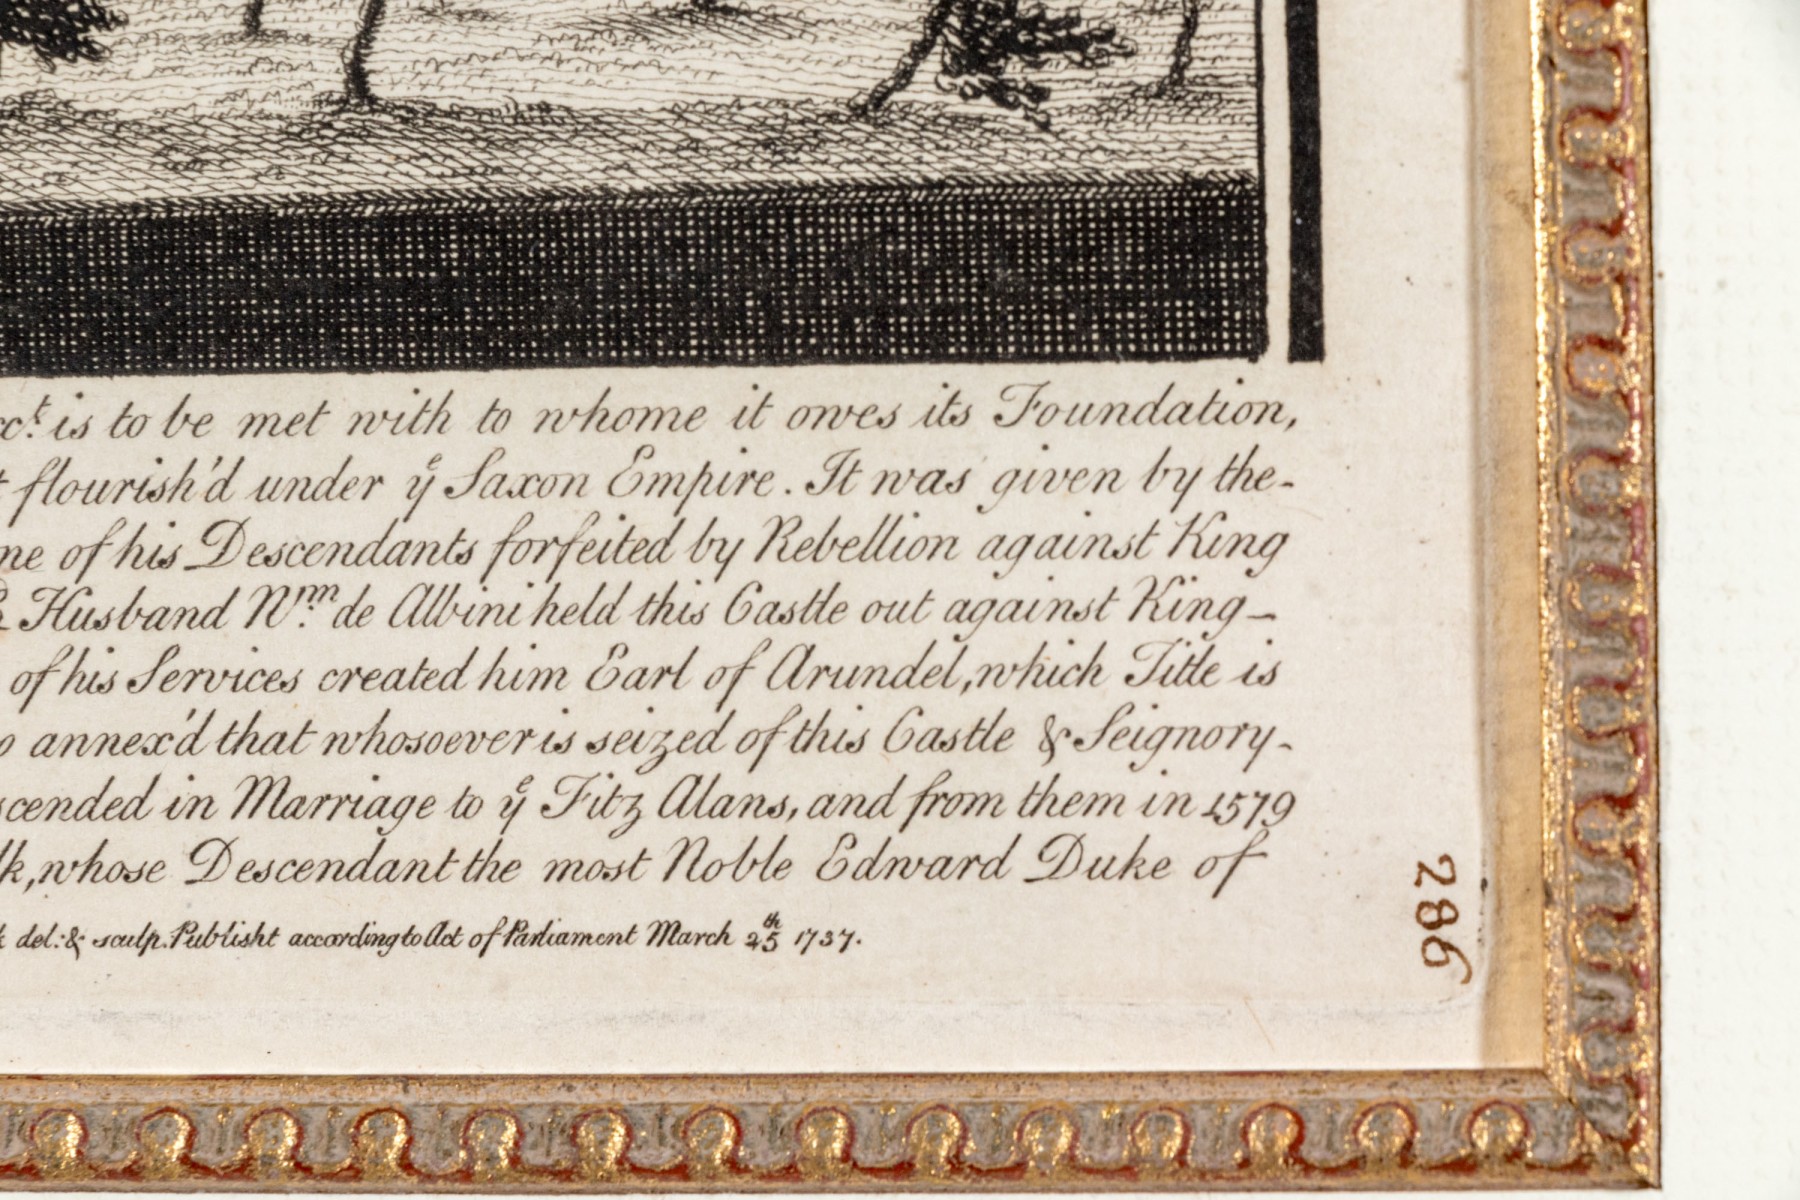 cc.ᵗ is to be met with to whome it owes its Foundation,
t flourish'd under yᵉ Saxon Empire. It was given by the-
ne of his Descendants forfeited by Rebellion against King
& Husband Wᵐ. de Albini held this Castle out against King-
of his Services created him Earl of Arundel, which Title is
o annex'd that whosoever is seized of this Castle & Seignory-
scended in Marriage to yᵉ Fitz Alans, and from them in 1579
lk, whose Descendant the most Noble Edward Duke of
k del: & sculp. Publisht according to Act of Parliament March 25ᵗʰ 1737.
286